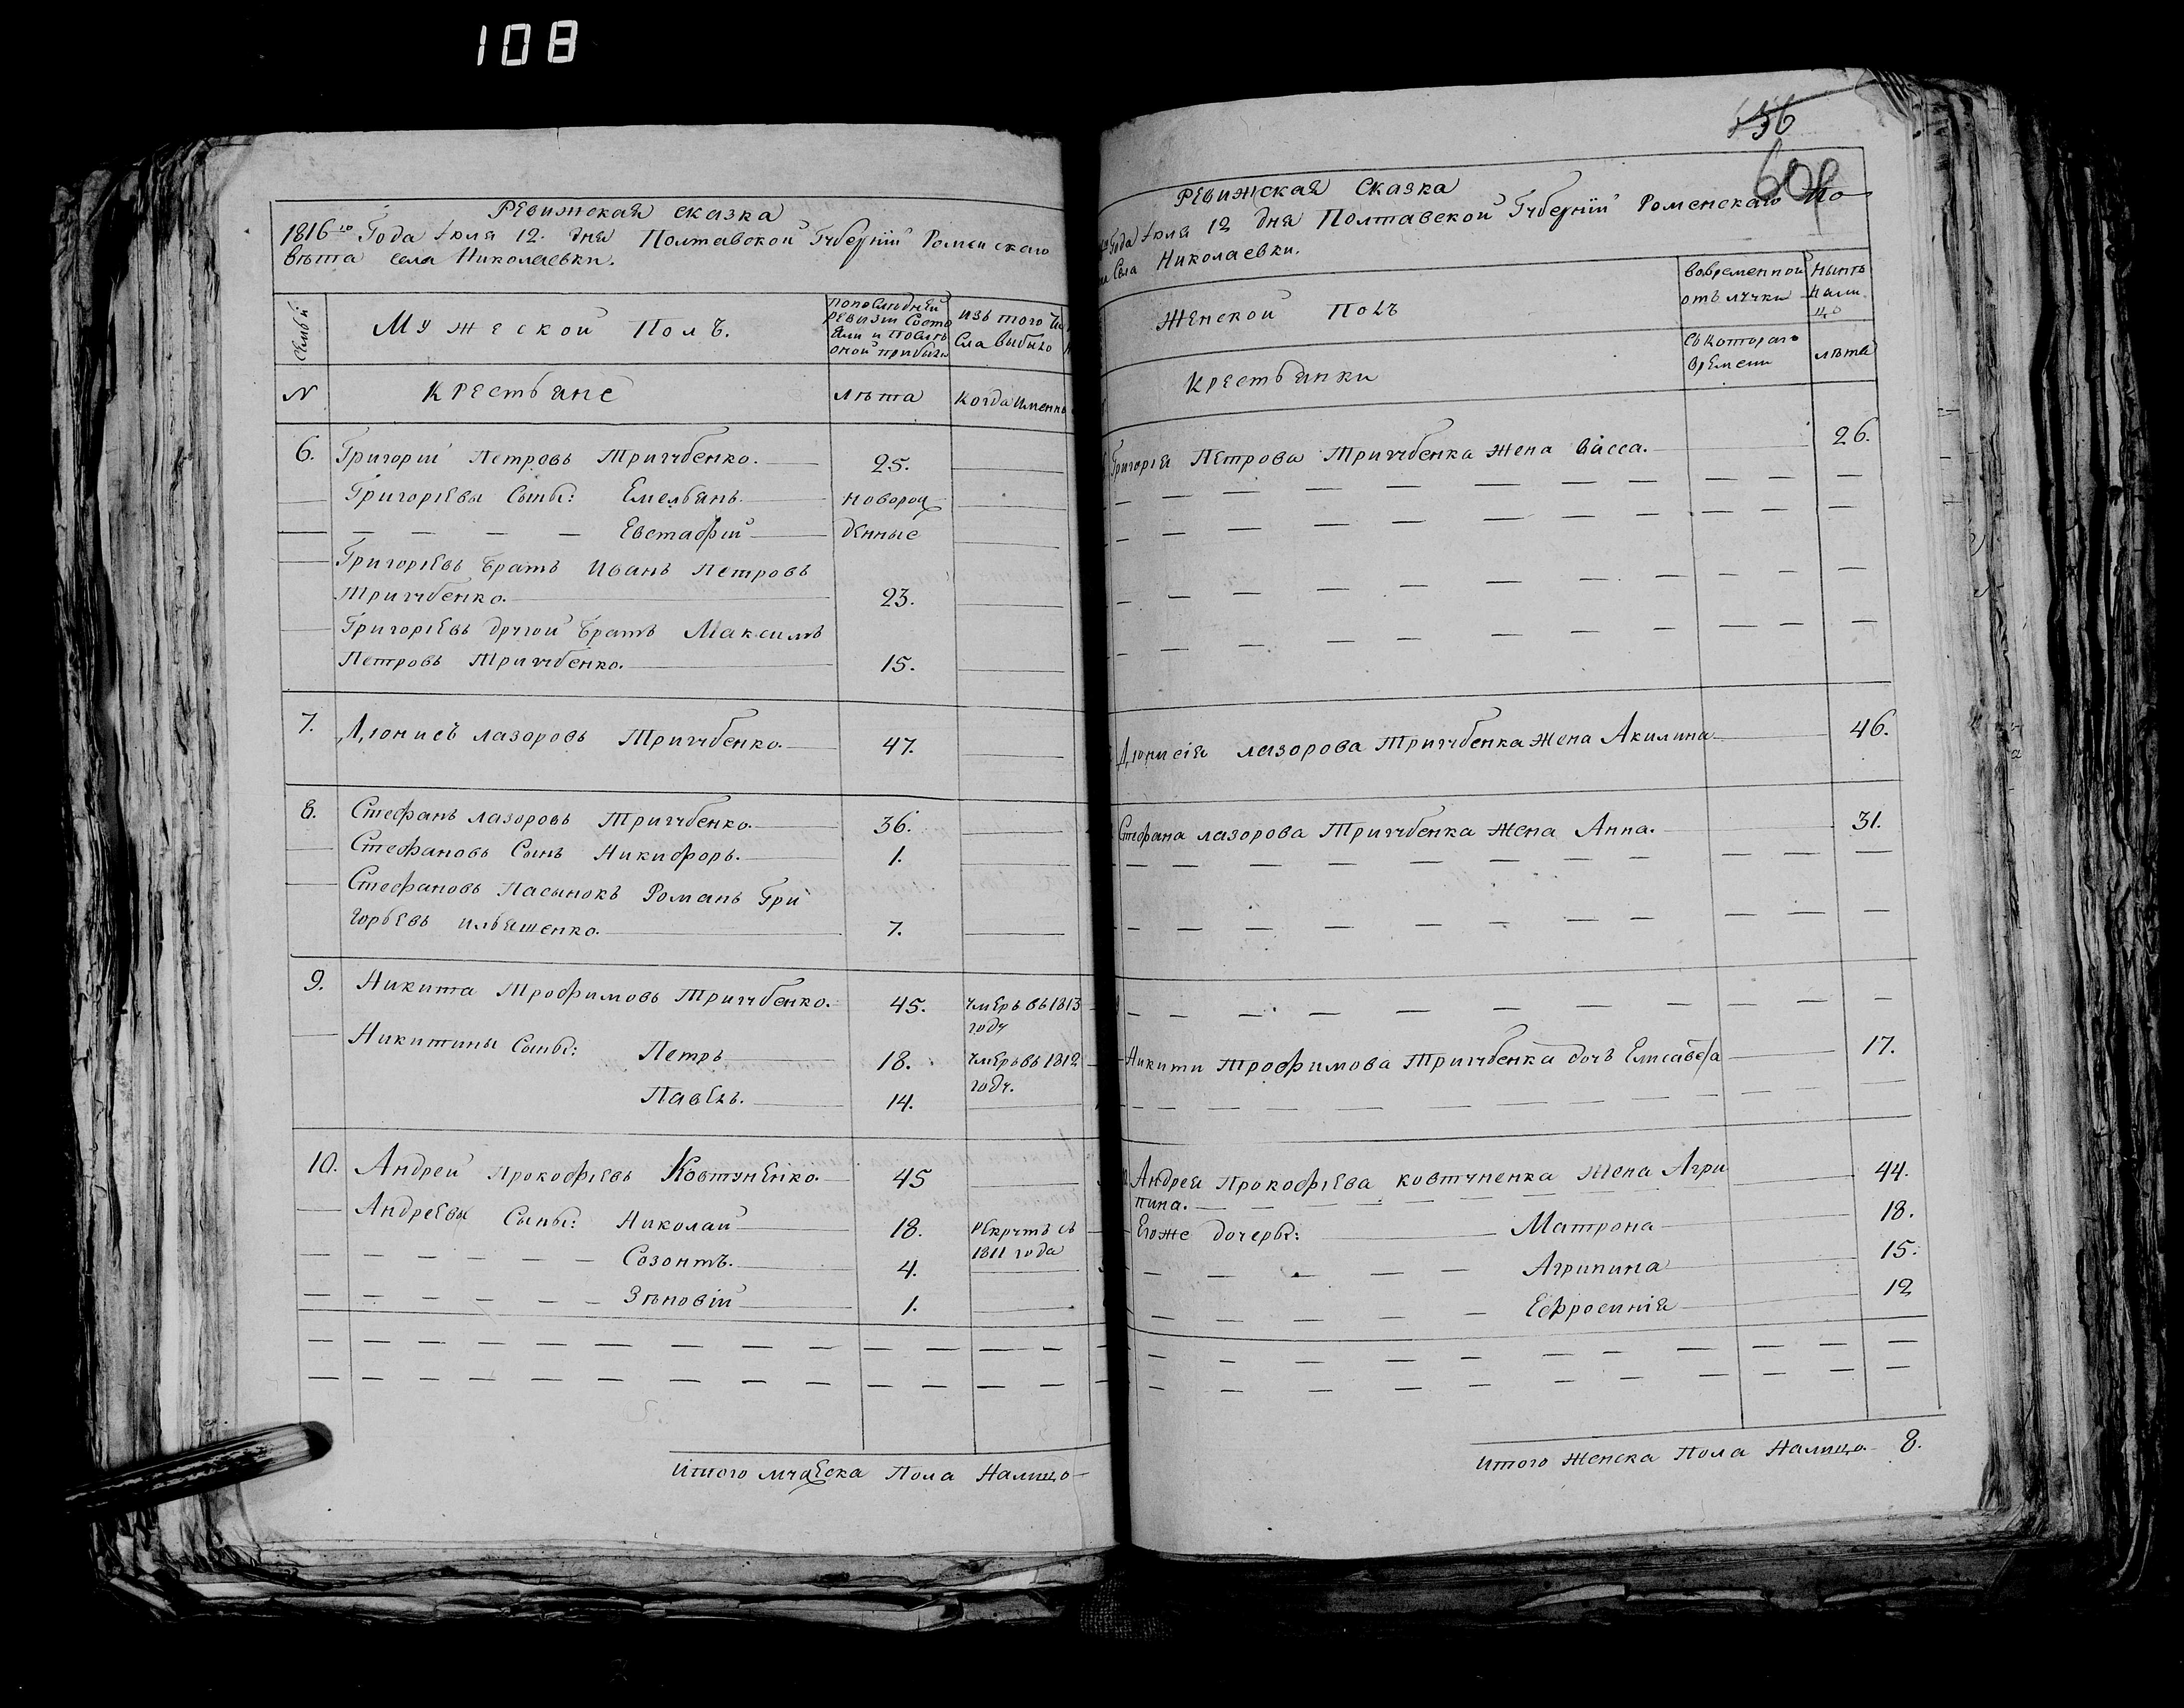 108
Ревижская сказка
1816го Года Июля 12. дня Полтавской Губерніи Роменскаго
вѣта села Николаевки.
Семьи
Мужеской Полъ.
по последней
ревизіи состо
яли и после
оной прибыли
изъ того чи
сла выбыло
N
Крестьяне
лѣта
когда именно
6. Григорій Петровъ Тригубенко. 25.
Григоріевы Сыны: Емельянъ новорож
Евстафій денные
Григоріевъ братъ Иванъ Петровъ
Тригубенко. 23.
Григоріевъ другой братъ Максимъ
Петровъ Тригубенко. 15.
7. Діонисъ лазоровъ Тригубенко. 47.
8. Стефанъ лазоровъ Тригубенко. 36.
Стефановъ Сынъ Никифоръ. 1.
Стефановъ Пасынокъ Романъ Гри
горьевъ ильяшенко. 7.
9. Никита Трофимовъ Тригубенко. 45. умеръ въ 1813
году
Никитины Сыны: Петръ 18. умеръ въ 1812
году.
Павелъ. 14.
10. Андрей Прокофіевъ Ковтуненко. 45
Андреевы Сыны: Николай 18. рекрутъ съ
1811 года
Созонтъ. 4.
Зѣновій 1.
Итого мужеска Пола Налицо
556
609
Ревижская Сказка
Года Июля 12 дня Полтавской Губерніи Роменскаго По
Села Николаевки.
Женской Полъ
Вовременной
отълучки
Нынѣ
Нали
цо
Съ котораго
времени
лѣта
Крестьянки
Григорія Петрова Тригубенка жена Васса. 26.
Діонисія лазорова Тригубенка жена Акилина 46.
Стефана лазорова Тригубенка жена Анна. 31.
Никити Трофимова Тригубенка дочъ Елисавефа 17.
Андрея Прокофіева ковтуненка жена Агри 44.
пина.
Егоже дочеры: Матрона 18.
Агрипина 15.
Ефросинія 12
Итого Женска Пола Налицо. 8.